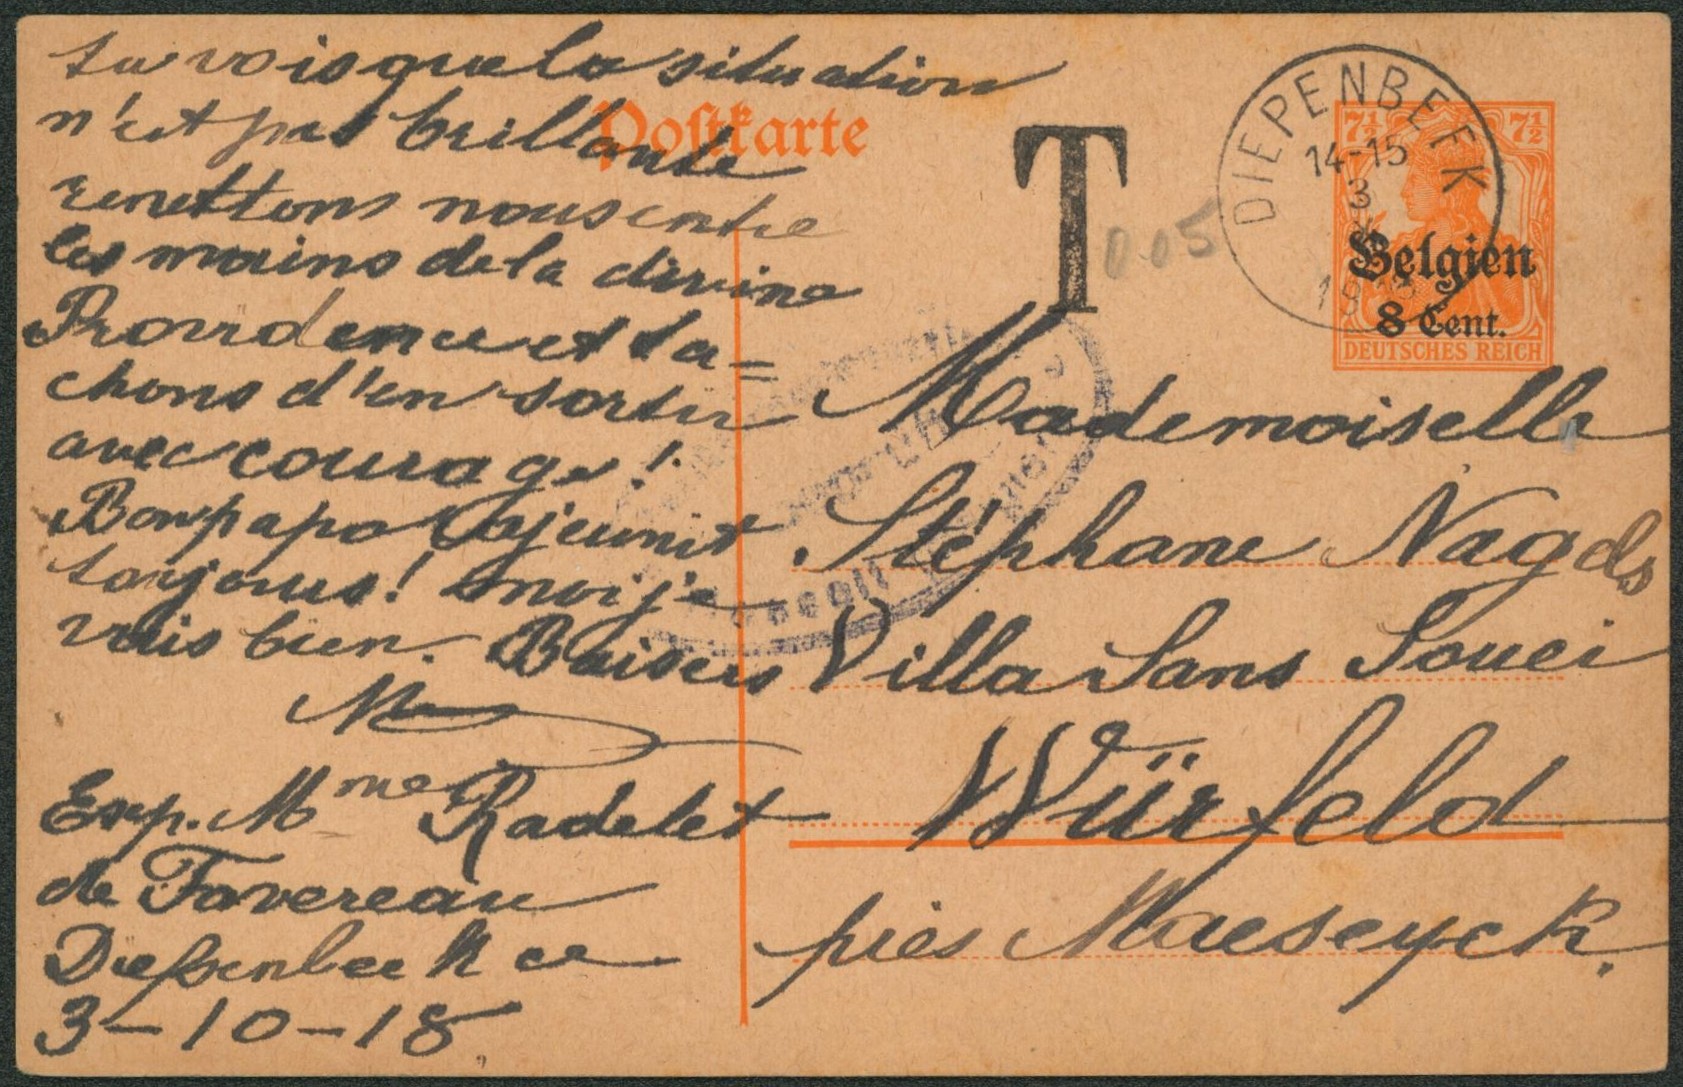 tu vois que la situation
n'est pas brillante
remettons nous entre
les mains de la divine
Providence et ta-
chons d'en sortir
avec courage!
Bonpapa rajeunit
toujours! moi je
vais bien. Baisers
M
Exp. Mme Radelet
de Favereau
Diepenbeek ce
3-10-18.
Postkarte
T
0.05
DIEPENBEEK
14-15
3
19
7½ 7½
Belgien
8 Cent.
DEUTSCHES REICH
Mademoiselle
Stéphane Nagels
Villa Sans Souci
Würfeld
près Maeseyck.